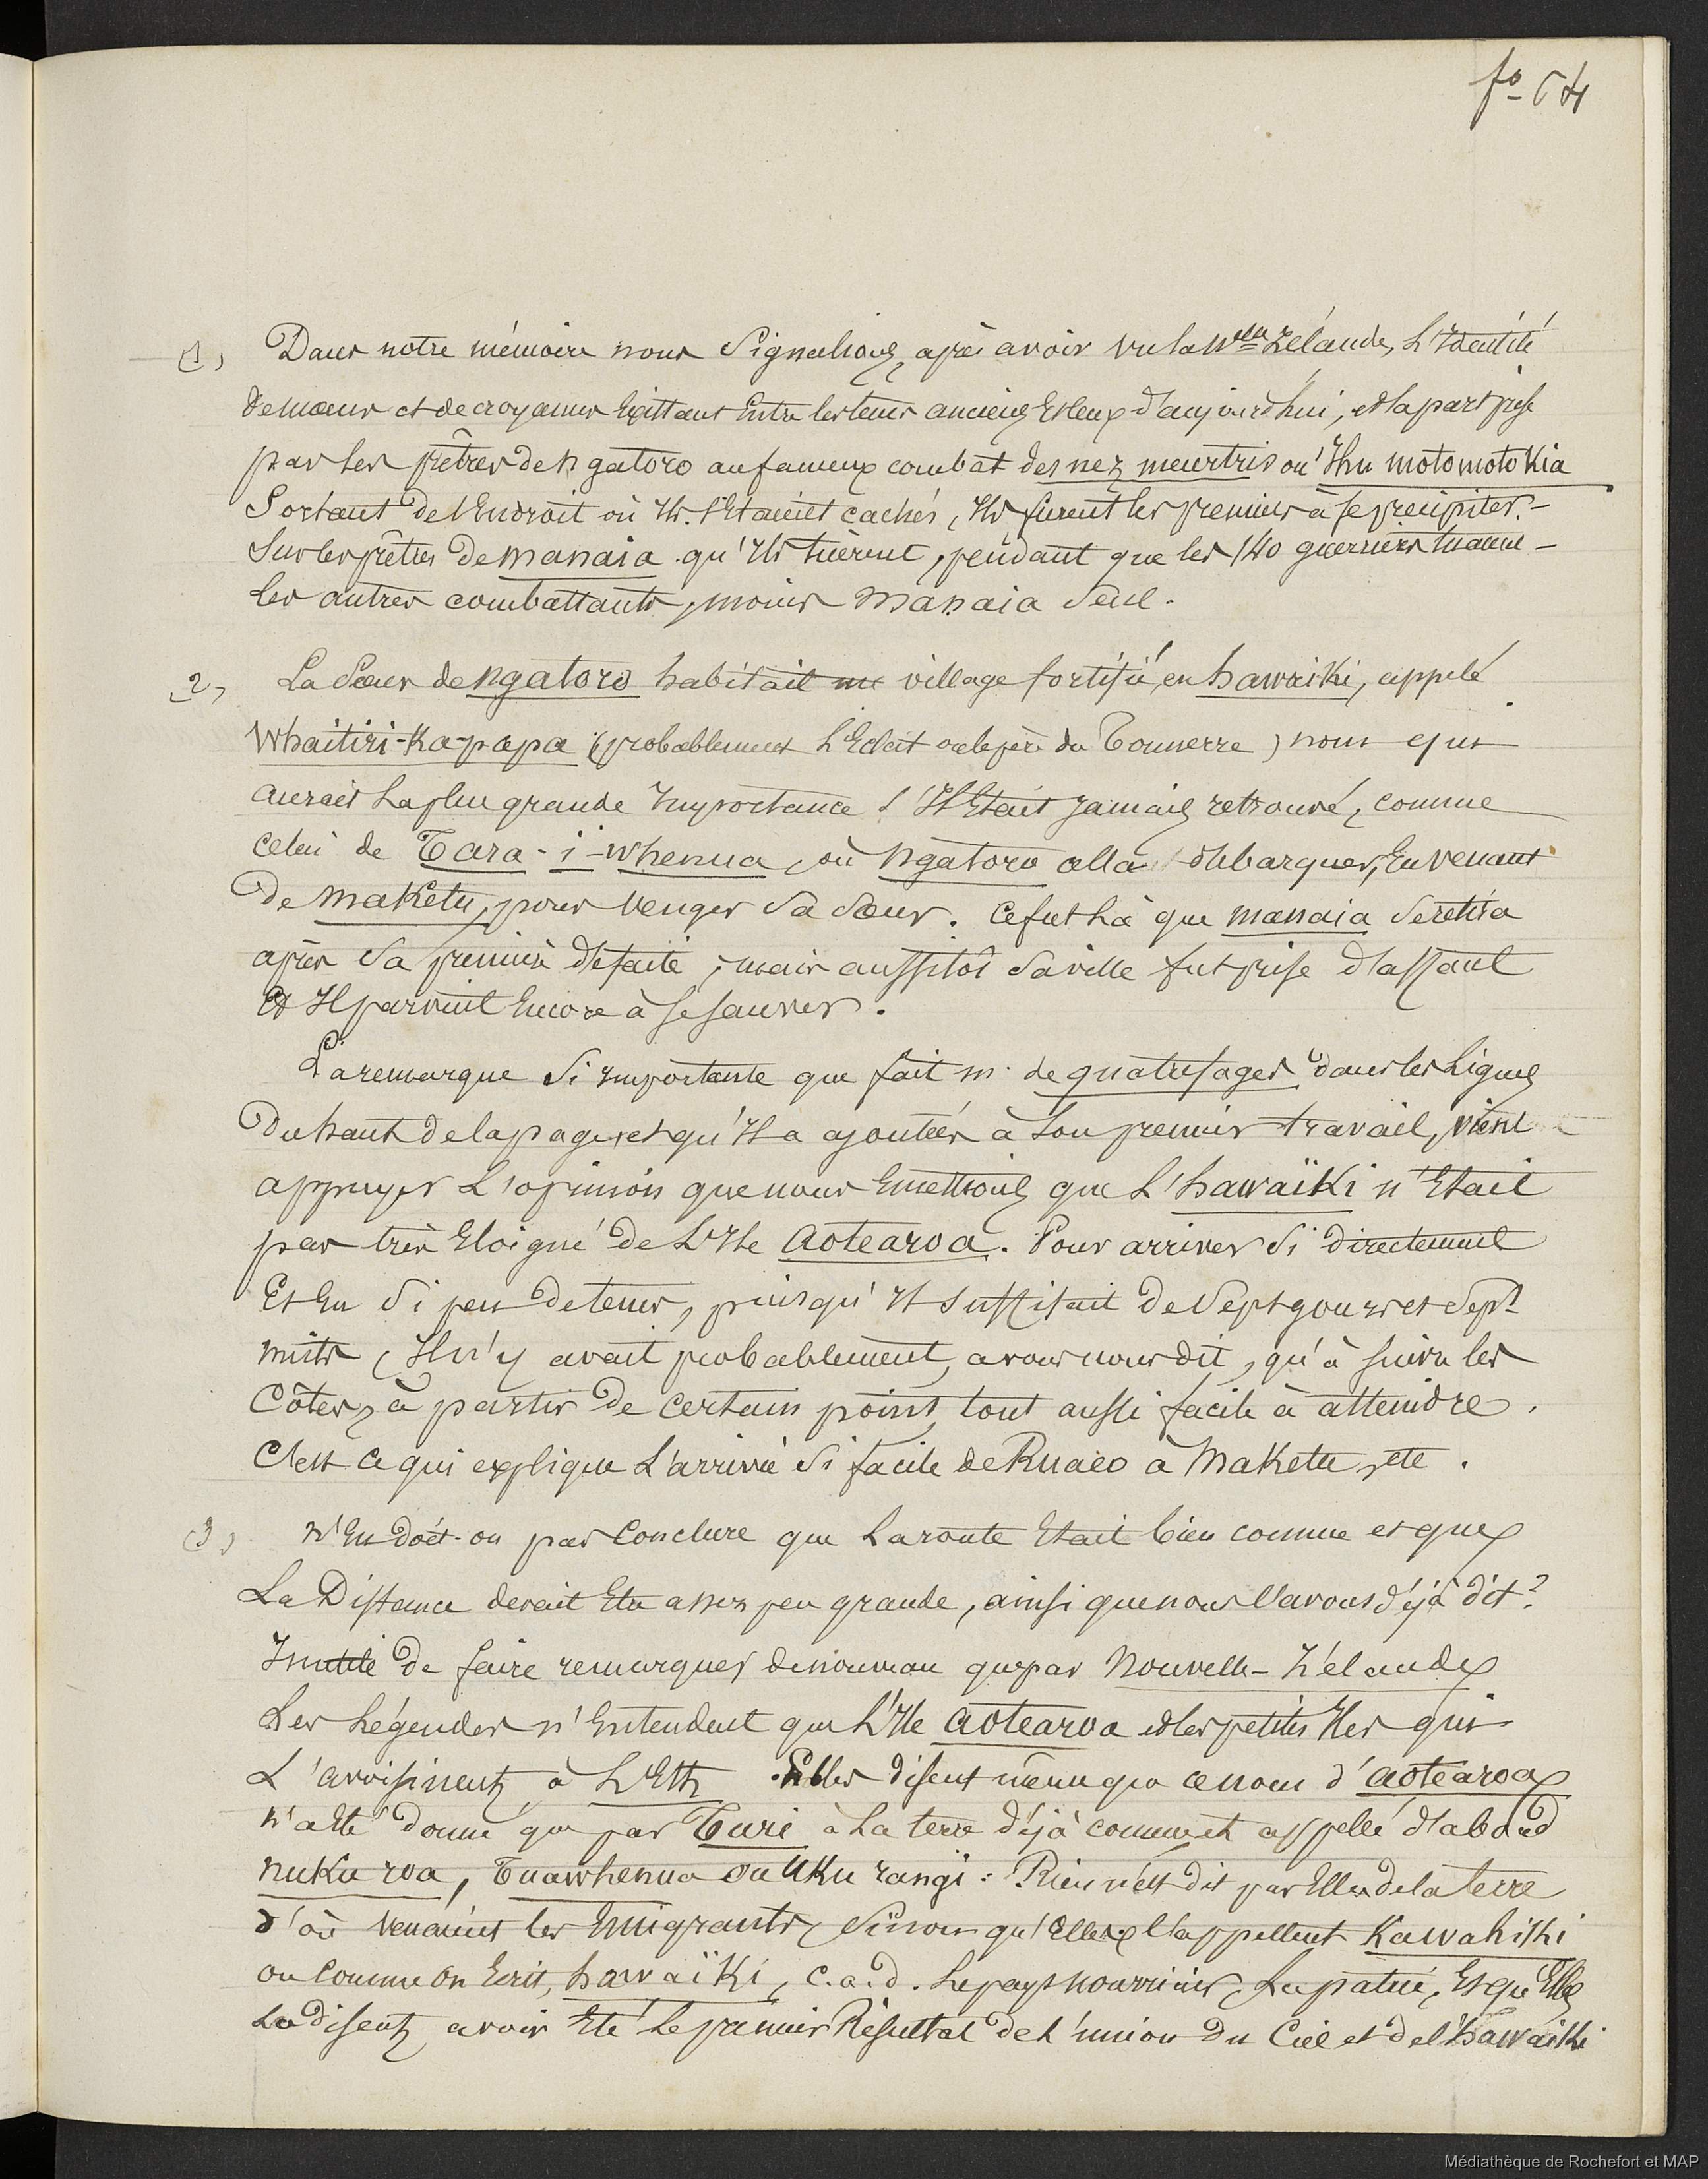 fo 64
(1) Dans notre mémoire nous signalions, après avoir vu la Nlle Zélande, l'Identité
de mœurs et de croyances Existant Entre les tems anciens Et ceux d'aujourd'hui, et la part prise
par les prêtres de Ngatoro au fameux combat des nez meurtris ou Ihu motomoto Kia
Sortant de l'Endroit où Ils s'Etaient cachés, Ils furent les premiers à se précipiter
Sur les prêtres de manaia qu'Ils tuèrent, pendant que les 140 guerriers tuaient
les autres combattants, moins Manaia seul.
(2) La Sœur de Ngatoro habitait un village fortifié, en hawaiki, appelé
Whaitiri-Ka-papa (probablement l'Eclat ou le père du Tonnerre) nom qui
aurait la plus grande Importance s'Il Etait Jamais retrouvé, comme
celui de Tara-i-whenua, où Ngatoro alla débarquer, En venant
de Maketu, pour venger sa sœur. Ce fut là que manaia se retira
après sa première défaite, mais aussitôt sa ville fut prise d'assaut
Et Il parvint Encore à se sauver.
La remarque si importante que fait m. de quatrefages dans les Lignes
Du haut de la page, et qu'Il a ajoutées à son premier travail, vient
appuyer l'opinion que nous Emettions que l'hawaïki n'Etait
pas très Eloigné de l'Ile Aotearoa. Pour arriver si directement
Et En si peu de tems, puisqu'Il suffisait de Sept jours et Sept
nuits, Il n'y avait probablement, avons nous dit, qu'à suivre les
Côtes, à partir de certain point tout aussi facile à atteindre.
C'est ce qui explique l'arrivée si facile de Ruaeo à Maketu, etc.
(3) N'En doit-on pas Conclure que la route Etait bien connue et que
La Distance devait Etre assez peu grande, ainsi que nous l'avons déjà dit?
Inutile de faire remarquer de nouveau que par Nouvelle-Zélande
Les Légendes n'Entendent que l'Ile Aotearoa et les petites Iles qui
L'avoisinent, à L'Est. Elles disent même que ce nom d'aotearoa
n'a été donné que par Turi à la terre déjà connue et appelée d'abord
nuku roa, Tuawhenua ou Uku rangi: Rien n'est dit par Elles de la terre
d'où venaient les Emigrants, Sinon qu'Elles l'appellent Kawahiki
ou Comme on Ecrit, hawaïki, c.a.d. Le pays nourricier, La patrie, Et qu'Elles
La disent avoir Eté le premier Résultat de l'union Du Ciel et de l'hawaiki